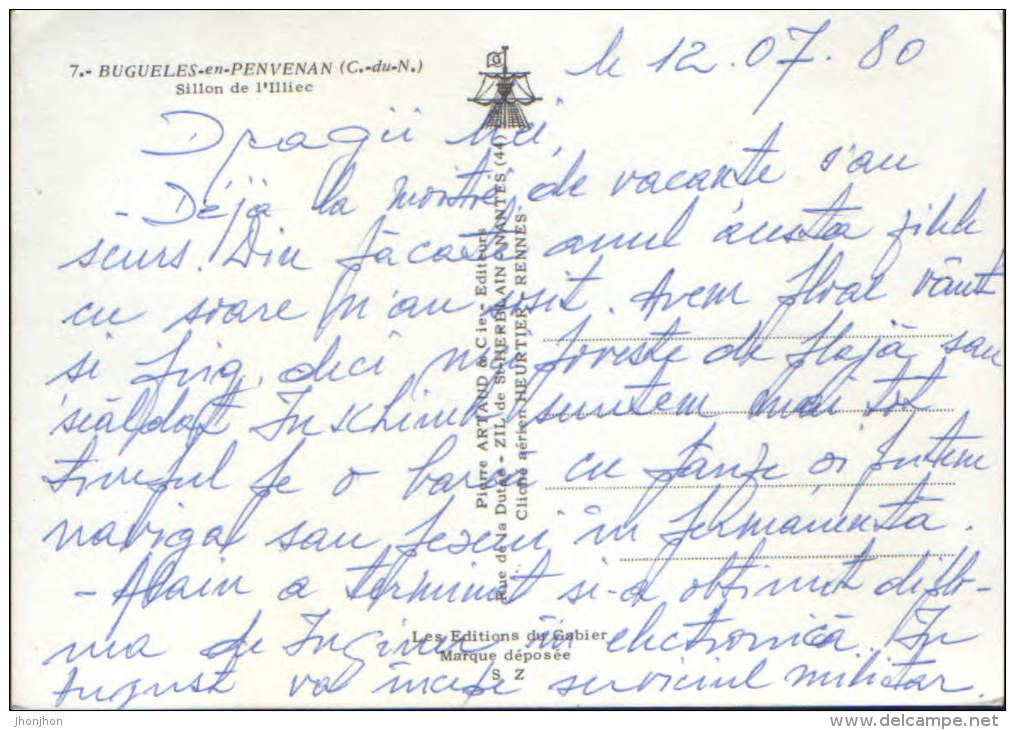 7.- BUGUELES-en-PENVENAN (C.-du-N.)
Sillon de l'Illiec
le 12.07.80
Dragii mei,
- Déjà la moitié de vacante s'au
scurs. Din păcate anul acesta zile
cu soare n'au fost. Avem ploaie vânt
si frig, deci nu poveste de plajă sau
scăldat. In schimb suntem mai tot
timpul pe o barcă cu pânze si putem
naviga sau în permanenta.
- Alain a terminat si-a obtinut diplo-
ma de Inginer in electronică. In
August va incepe serviciul militar.
Pierre ARTAUD & Cie - Editeurs
Rue de la Dutée - ZIL de St-HERBLAIN - NANTES (44)
Cliché aérien HEURTIER - RENNES
Les Editions du Gabier
Marque déposée
S Z
jhonjhon
www.delcampe.net